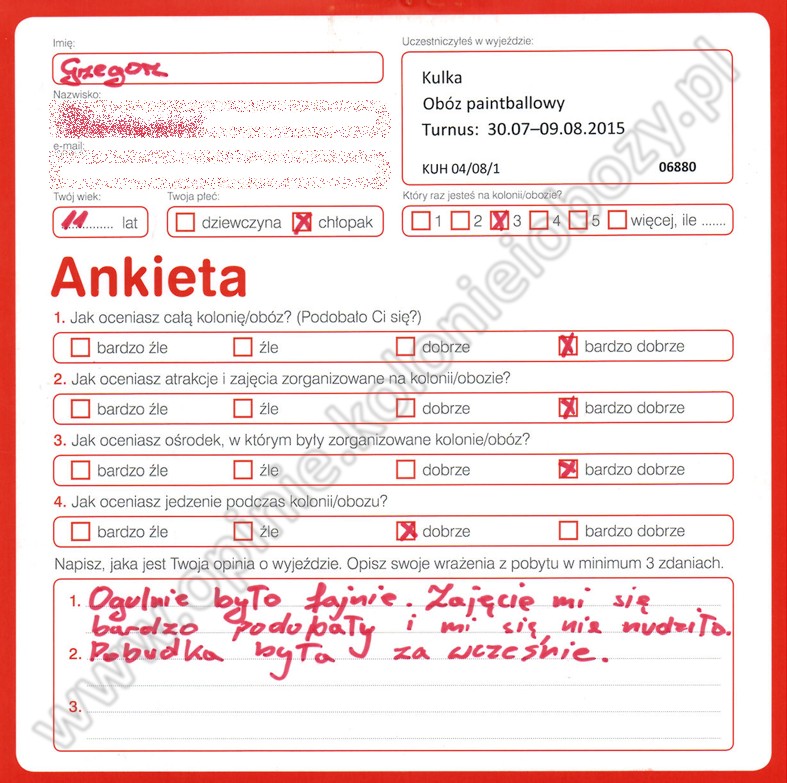 Imię:
Grzegorz
Nazwisko:
e-mail:
Twój wiek:
11 .......... lat
Twoja płeć:
dziewczyna chłopak
Uczestniczyłeś w wyjeździe:
Kulka
Obóz paintballowy
Turnus: 30.07–09.08.2015
KUH 04/08/1 06880
Który raz jesteś na kolonii/obozie?
1 2 3 4 5 więcej, ile .......
Ankieta
1. Jak oceniasz całą kolonię/obóz? (Podobało Ci się?)
bardzo źle źle dobrze bardzo dobrze
2. Jak oceniasz atrakcje i zajęcia zorganizowane na kolonii/obozie?
bardzo źle źle dobrze bardzo dobrze
3. Jak oceniasz ośrodek, w którym były zorganizowane kolonie/obóz?
bardzo źle źle dobrze bardzo dobrze
4. Jak oceniasz jedzenie podczas kolonii/obozu?
bardzo źle źle dobrze bardzo dobrze
Napisz, jaka jest Twoja opinia o wyjeździe. Opisz swoje wrażenia z pobytu w minimum 3 zdaniach.
1. Ogulnie było fajnie. Zajęcie mi się
bardzo podobały i mi się nie nudziło.
2. Pobudka była za wcześnie.
3.
www.opinie.kolonieiobozy.pl